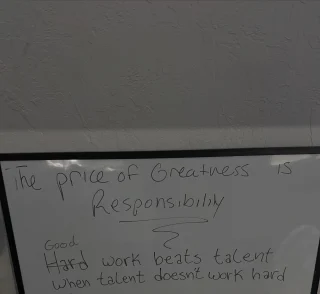 The price of Greatness is
Responsibility
Good
Hard work beats talent
when talent doesn't work hard